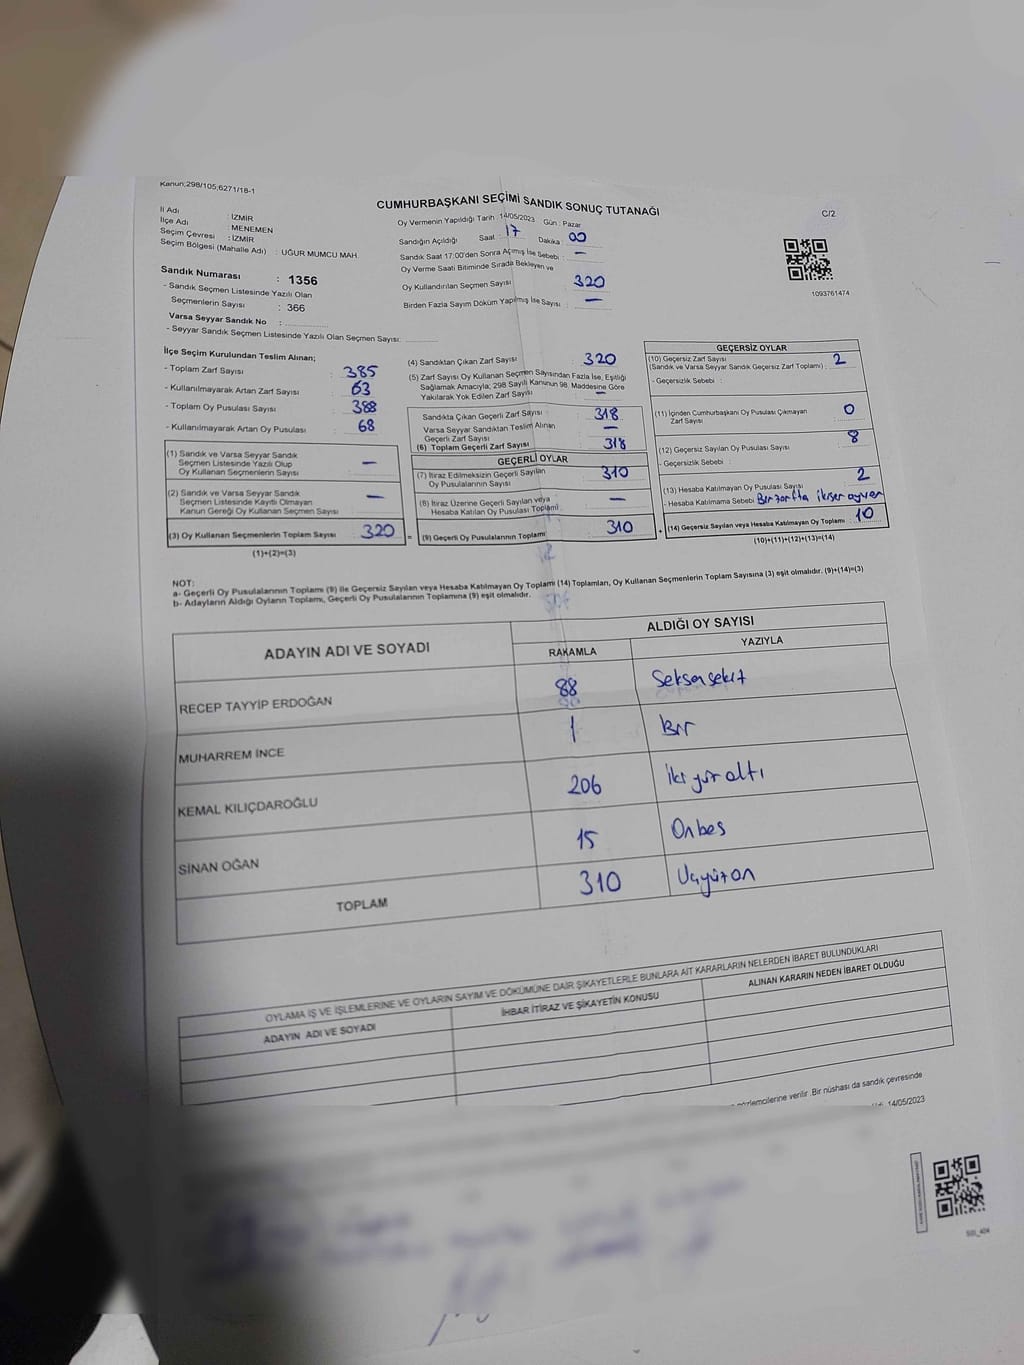 Kanun;298/105,6271/18-1
CUMHURBAŞKANI SEÇİMİ SANDIK SONUÇ TUTANAĞI
C/2
İl Adı : İZMİR
İlçe Adı : MENEMEN
Seçim Çevresi : İZMİR
Seçim Bölgesi (Mahalle Adı) : UĞUR MUMCU MAH.
Oy Vermenin Yapıldığı Tarih :14/05/2023 Gün : Pazar
Sandığın Açıldığı Saat : 17 Dakika : 00
Sandık Saat 17:00'den Sonra Açımış İse Sebebi : —
Oy Verme Saati Bitiminde Sırada Bekleyen ve
Oy Kullandırılan Seçmen Sayısı : 320
Birden Fazla Sayım Döküm Yapılmış İse Sayısı : —
1093761474
Sandık Numarası : 1356
- Sandık Seçmen Listesinde Yazılı Olan
Seçmenlerin Sayısı : 366
Varsa Seyyar Sandık No :
- Seyyar Sandık Seçmen Listesinde Yazılı Olan Seçmen Sayısı:
İlçe Seçim Kurulundan Teslim Alınan;
- Toplam Zarf Sayısı : 385
- Kullanılmayarak Artan Zarf Sayısı : 63
- Toplam Oy Pusulası Sayısı : 388
- Kullanılmayarak Artan Oy Pusulası : 68
(1) Sandık ve Varsa Seyyar Sandık
Seçmen Listesinde Yazılı Olup
Oy Kullanan Seçmenlerin Sayısı : —
(2) Sandık ve Varsa Seyyar Sandık
Seçmen Listesinde Kayıtlı Olmayan
Kanun Gereği Oy Kullanan Seçmen Sayısı : —
(3) Oy Kullanan Seçmenlerin Toplam Sayısı : 320 =
(1)+(2)=(3)
(4) Sandıktan Çıkan Zarf Sayısı : 320
(5) Zarf Sayısı Oy Kullanan Seçmen Sayısından Fazla İse, Eşitliği
Sağlamak Amacıyla; 298 Sayılı Kanunun 98. Maddesine Göre
Yakılarak Yok Edilen Zarf Sayısı : —
Sandıkta Çıkan Geçerli Zarf Sayısı : 318
Varsa Seyyar Sandıktan Teslim Alınan
Geçerli Zarf Sayısı : —
(6) Toplam Geçerli Zarf Sayısı : 318
GEÇERLİ OYLAR
(7) İtiraz Edilmeksizin Geçerli Sayılan
Oy Pusulalarının Sayısı : 310
(8) İtiraz Üzerine Geçerli Sayılan veya
Hesaba Katılan Oy Pusulası Toplamı : —
(9) Geçerli Oy Pusulalarının Toplamı : 310 +
GEÇERSİZ OYLAR
(10) Geçersiz Zarf Sayısı
(Sandık ve Varsa Seyyar Sandık Geçersiz Zarf Toplamı) : 2
- Geçersizlik Sebebi :
(11) İçinden Cumhurbaşkanı Oy Pusulası Çıkmayan
Zarf Sayısı : 0
(12) Geçersiz Sayılan Oy Pusulası Sayısı : 8
- Geçersizlik Sebebi :
(13) Hesaba Katılmayan Oy Pusulası Sayısı : 2
- Hesaba Katılmama Sebebi : Bir zarfta ikişer
(14) Geçersiz Sayılan veya Hesaba Katılmayan Oy Toplamı : 10
(10)+(11)+(12)+(13)=(14)
NOT:
a- Geçerli Oy Pusulalarının Toplamı (9) ile Geçersiz Sayılan veya Hesaba Katılmayan Oy Toplamı (14) Toplamları, Oy Kullanan Seçmenlerin Toplam Sayısına (3) eşit olmalıdır. (9)+(14)=(3)
b- Adayların Aldığı Oyların Toplamı, Geçerli Oy Pusulalarının Toplamına (9) eşit olmalıdır.
ADAYIN ADI VE SOYADI
ALDIĞI OY SAYISI
RAKAMLA YAZIYLA
RECEP TAYYİP ERDOĞAN 88 Seksensekiz
MUHARREM İNCE 1 Bir
KEMAL KILIÇDAROĞLU 206 İki yüz altı
SİNAN OĞAN 15 Onbeş
TOPLAM 310 Üçyüzon
OYLAMA İŞ VE İŞLEMLERİNE VE OYLARIN SAYIM VE DÖKÜMÜNE DAİR ŞİKAYETLERLE BUNLARA AİT KARARLARIN NELERDEN İBARET BULUNDUKLARI
ADAYIN ADI VE SOYADI
İHBAR İTİRAZ VE ŞİKAYETİN KONUSU
ALINAN KARARIN NEDEN İBARET OLDUĞU
verilir .Bir nüshası da sandık çevresinde
14/05/2023